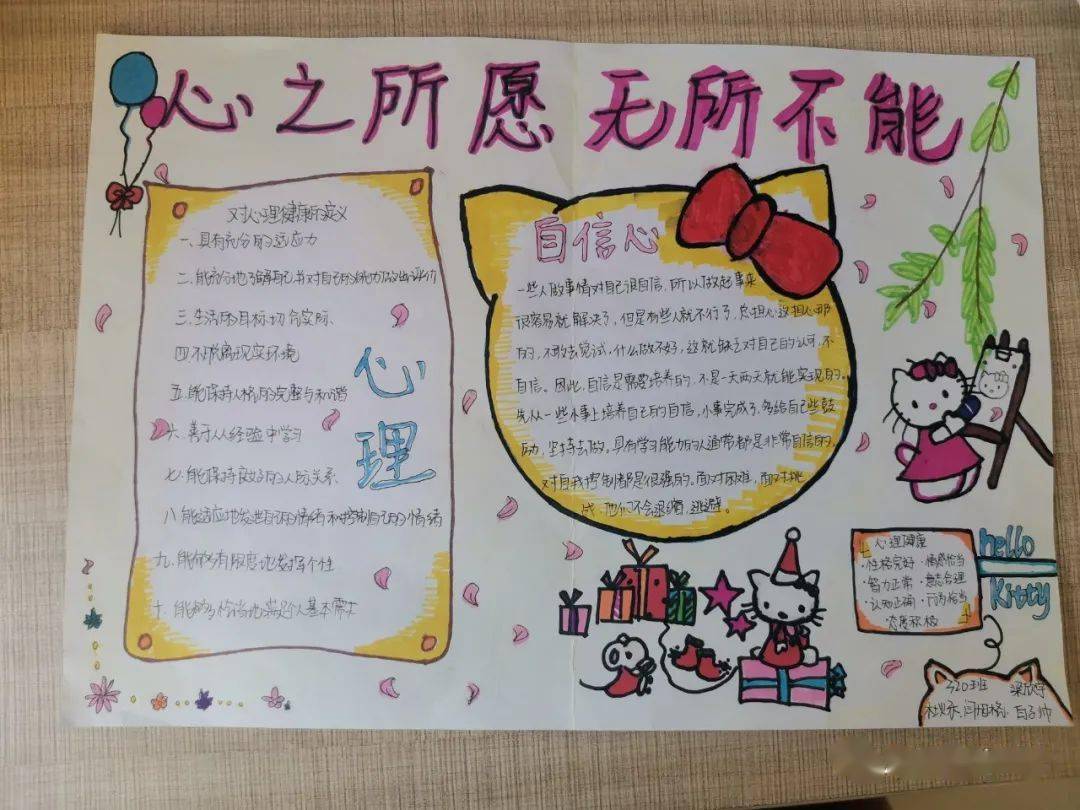 心之所愿 无所不能
对心理健康的定义
一、具有充分的适应力
二、能充分地了解自己,并对自己的能力做出评价
三、生活的目标切合实际、
四、不脱离现实环境
五、能保持人格的完整与和谐
六、善于从经验中学习
七、能保持良好的人际关系、
八、能适应地发泄自己的情绪和控制自己的情绪
九、能够有限度地发挥个性
十、能够恰当地满足个人基本需求
心理
自信心
一些人做事情对自己很自信,所以做起事来
很容易就解决了,但是有些人就不行了,总担心这担心那
的,不敢去尝试,什么做不好,这就缺乏对自己的认可,不
自信。因此,自信是需要培养的,不是一天两天就能实现的。
先从一些小事上培养自己的自信,小事完成了,多给自己些鼓
励,坚持去做。具有学习能力的人通常都是非常自信的。
对自我控制都是很强的。面对困难,面对挑
战,他们不会退缩,逃避。
心理健康
·性格完好·情感恰当
·智力正常·意志合理
·认知正确·行为恰当
·态度积极
hello
Kitty
320班 梁欣宇
闫相格 白子帅